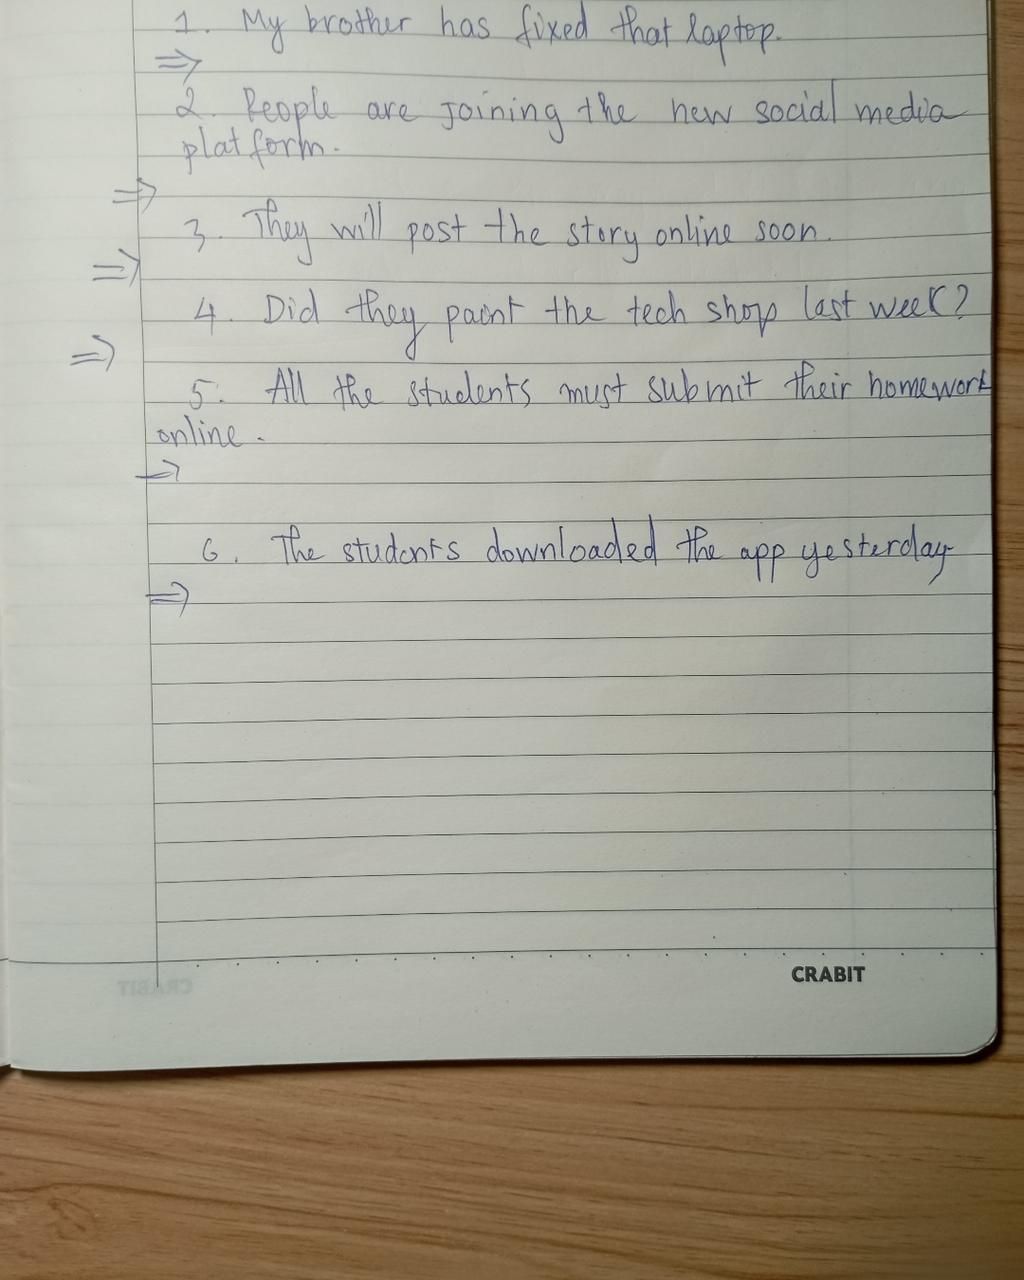 1. My brother has fixed that laptop.
⇒
2. People are joining the new social media
platform.
⇒
3. They will post the story online soon.
⇒
4. Did they paint the tech shop last week?
⇒
5. All the students must submit their homework
online.
→
6. The students downloaded the app yesterday
⇒
CRABIT